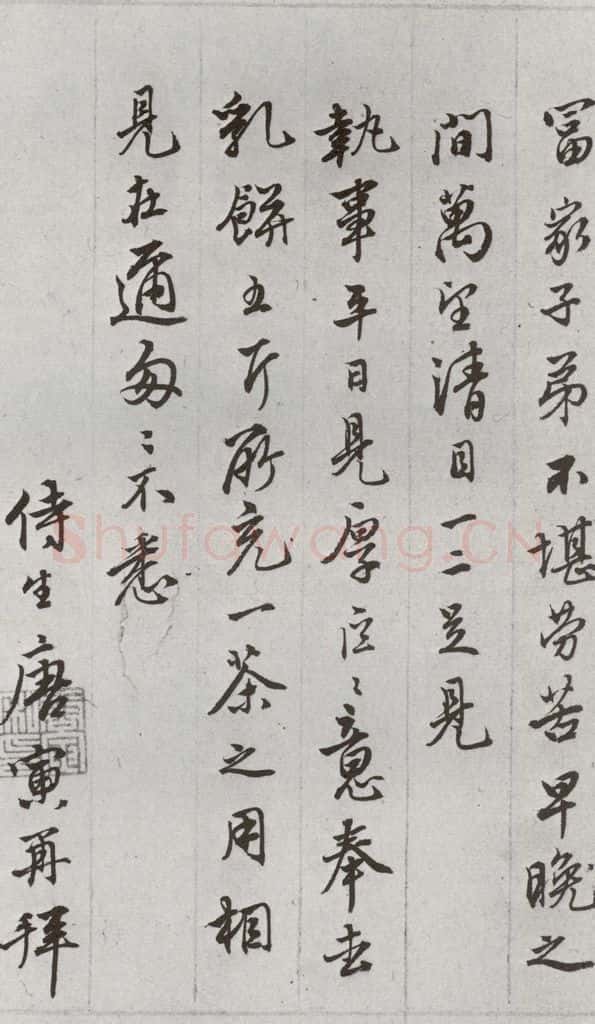 冨家子弟不堪劳苦早晚之
間萬望清目一二足見
執事平日見厚区〻意奉去
乳餅五斤所充一茶之用相
見在邇匆〻不悉
侍生唐寅再拜
Shufawang.CN